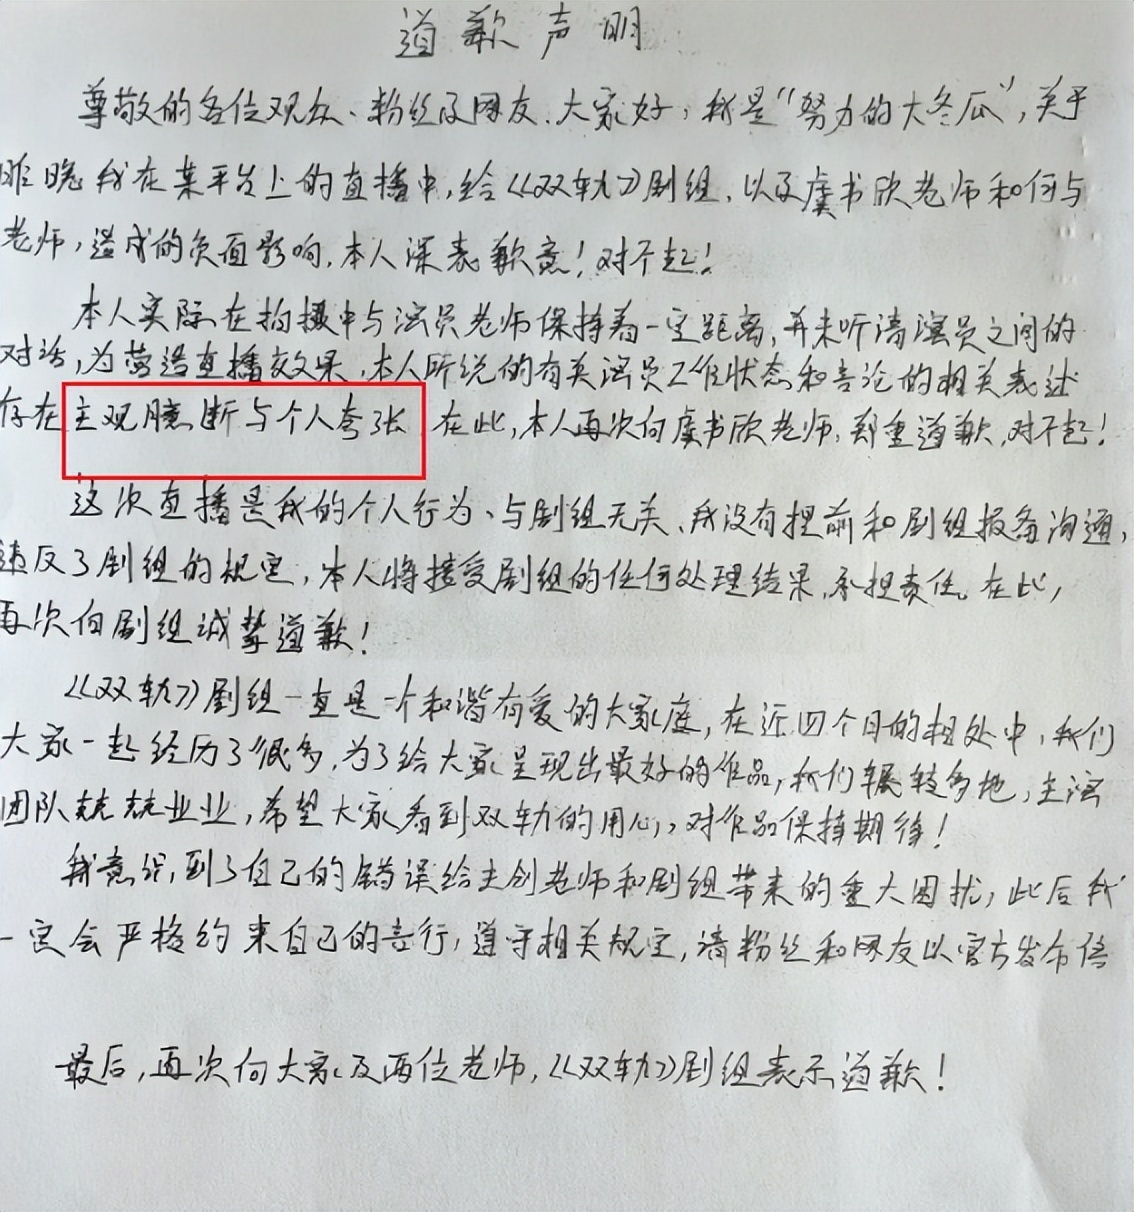 道歉声明
尊敬的各位观众、粉丝及网友、大家好，我是“努力的大冬瓜”，关于
昨晚我在某平台上的直播中，给《双轨》剧组，以及虞书欣老师和何与
老师，造成的负面影响，本人深表歉意！对不起！
本人实际在拍摄中与演员老师保持着一定距离，并未听清演员之间的
对话，为营造直播效果，本人所说的有关演员工作状态和言论的相关表述
存在主观臆断与个人夸张 在此，本人再次向虞书欣老师，郑重道歉，对不起！
这次直播是我的个人行为、与剧组无关、我没有提前和剧组报备沟通，
违反了剧组的规定，本人将接受剧组的任何处理结果，承担责任。在此，
再次向剧组诚挚道歉！
《双轨》剧组一直是一个和谐有爱的大家庭，在近四个月的相处中，我们
大家一起经历了很多，为了给大家呈现出最好的作品，我们辗转多地，主演
团队兢兢业业，希望大家看到双轨的用心，对作品保持期待！
我意识到了自己的错误给主创老师和剧组带来的重大困扰，此后我
一定会严格约束自己的言行，遵守相关规定，请粉丝和网友以官方发布信
最后，再次向大家及两位老师，《双轨》剧组表示道歉！